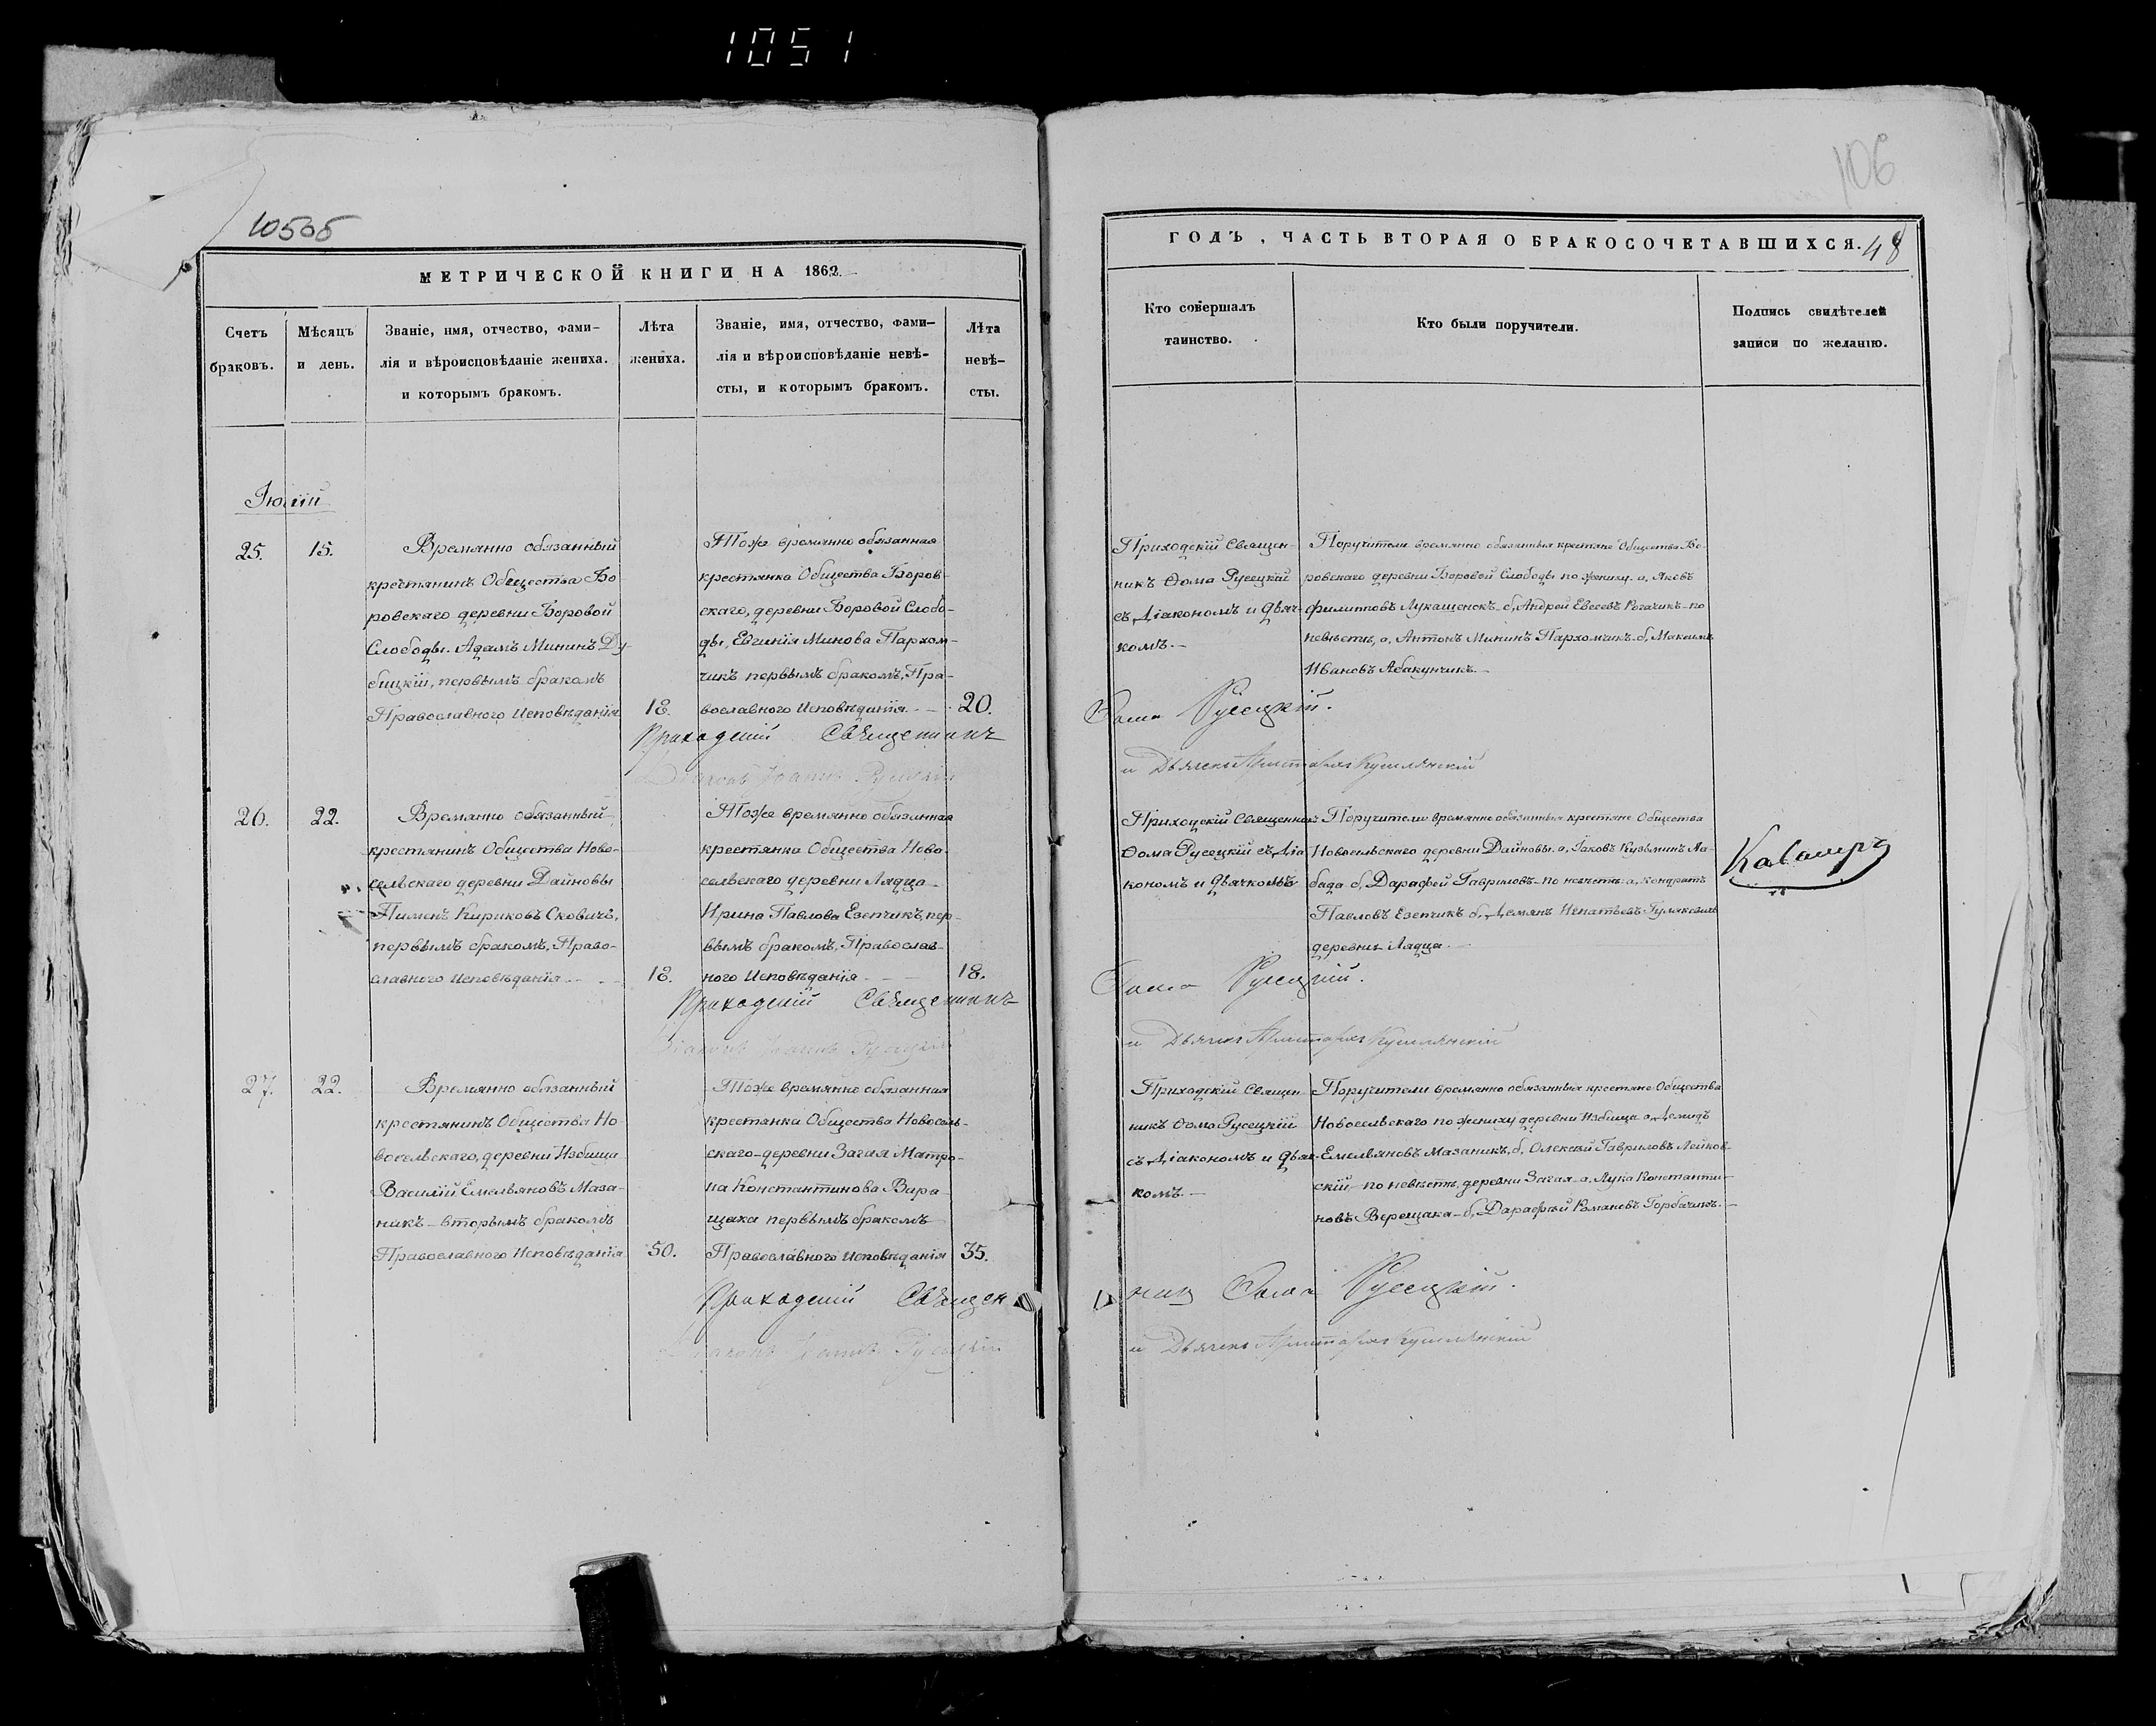 1051
106
10505
МЕТРИЧЕСКОЙ КНИГИ НА 1862.
Счетъ браковъ.
Мѣсяцъ и день.
Званіе, имя, отчество, фами-
лія и вѣроисповѣданіе жениха.
и которымъ бракомъ.
Лѣта
жениха.
Званіе, имя, отчество, фами-
лія и вѣроисповѣданіе невѣ-
сты, и которымъ бракомъ.
Лѣта
невѣ-
сты.
ГОДЪ, ЧАСТЬ ВТОРАЯ О БРАКОСОЧЕТАВШИХСЯ. 48
Кто совершалъ
таинство.
Кто были поручители.
Подпись свидѣтелей
записи по желанію.
25. 15.
Времянно обязанный
крестянинъ Общества Бо-
ровскаго деревни Боровой
Слободы. Адамъ Мининъ Ду-
бицкій, первымъ бракомъ
Православнаго Исповѣданія
18.
Тоже времянно обязанная
крестянка Общества Боров-
скаго, деревни Боровой Слобо-
ды, Евгинія Минова Пархом-
чикъ первымъ бракомъ, Пра-
вославного Исповѣданія
20.
Приходскій Священ-
никъ Фома Русецкій
съ Діакономъ и Дьяч-
комъ.
Поручители времянно обязанныя крестяне Общества Бо-
ровскаго деревни Боровой Слободы по жениху. а, Яковъ
Филипповъ Лукашенокъ б, Андрей Евсеевъ Рогачикъ по
невѣсты, а, Антонъ Мининъ Пархомчикъ б, Максимъ
Ивановъ Абакунчикъ
Приходскій Священникъ Фома Русецкій.
Діаконъ Іоаннъ Русецкій и Дьячекъ
26. 22.
Времянно обязанный
крестянинъ Общества Ново-
сельскаго деревни Дайновы
Пименъ Кириковъ Сковичъ,
первымъ бракомъ, Право-
славного Исповѣданія
18.
Тоже времянно обязанная
крестянка Общества Ново-
сельскаго деревни Лядца
Ирина Павлова Езепчикъ, пер-
вымъ бракомъ, Православ-
ного Исповѣданія
18.
Приходскій Священникъ
Фома Русецкій съ Діа-
кономъ и Дьячкомъ
Поручители времянно обязанныя крестяне Общества
Новосельскаго деревни Дайновы. а, Іаковъ Кузьминъ Ла-
бада б, Дарафей Гавриловъ по невѣсты а, Кондратъ
Павловъ Езепчикъ б, Демянъ Игнатьевъ
деревни Лядца
Приходскій Священникъ Фома Русецкій.
Діаконъ Іоаннъ Русецкій и Дьячекъ
27. 22.
Времянно обязанный
крестянинъ Общества Но-
восельскаго, деревни Избища
Василій Емельяновъ Маза-
никъ вторымъ бракомъ
Православного Исповѣданія
50.
Тоже времянно обязанная
крестянка Общества Новосель-
скаго деревни Загая Матро-
на Константинова Вара-
щака первымъ бракомъ
Православного Исповѣданія
35.
Приходскій Священ-
никъ Фома Русецкій
съ Діакономъ и Дьяч-
комъ
Поручители времянно обязанныя крестяне Общества
Новосельскаго по жениху деревни Избища а, Демидъ
Емельяновъ Мазаникъ, б, Олексѣй Гавриловъ Лейков-
скій по невѣсты, деревни Загая а, Лука Константи-
новъ Верещака б, Дарафей Романовъ Горбачикъ.
Приходскій Священникъ Фома Русецкій.
Діаконъ Іоаннъ Русецкій и Дьячекъ